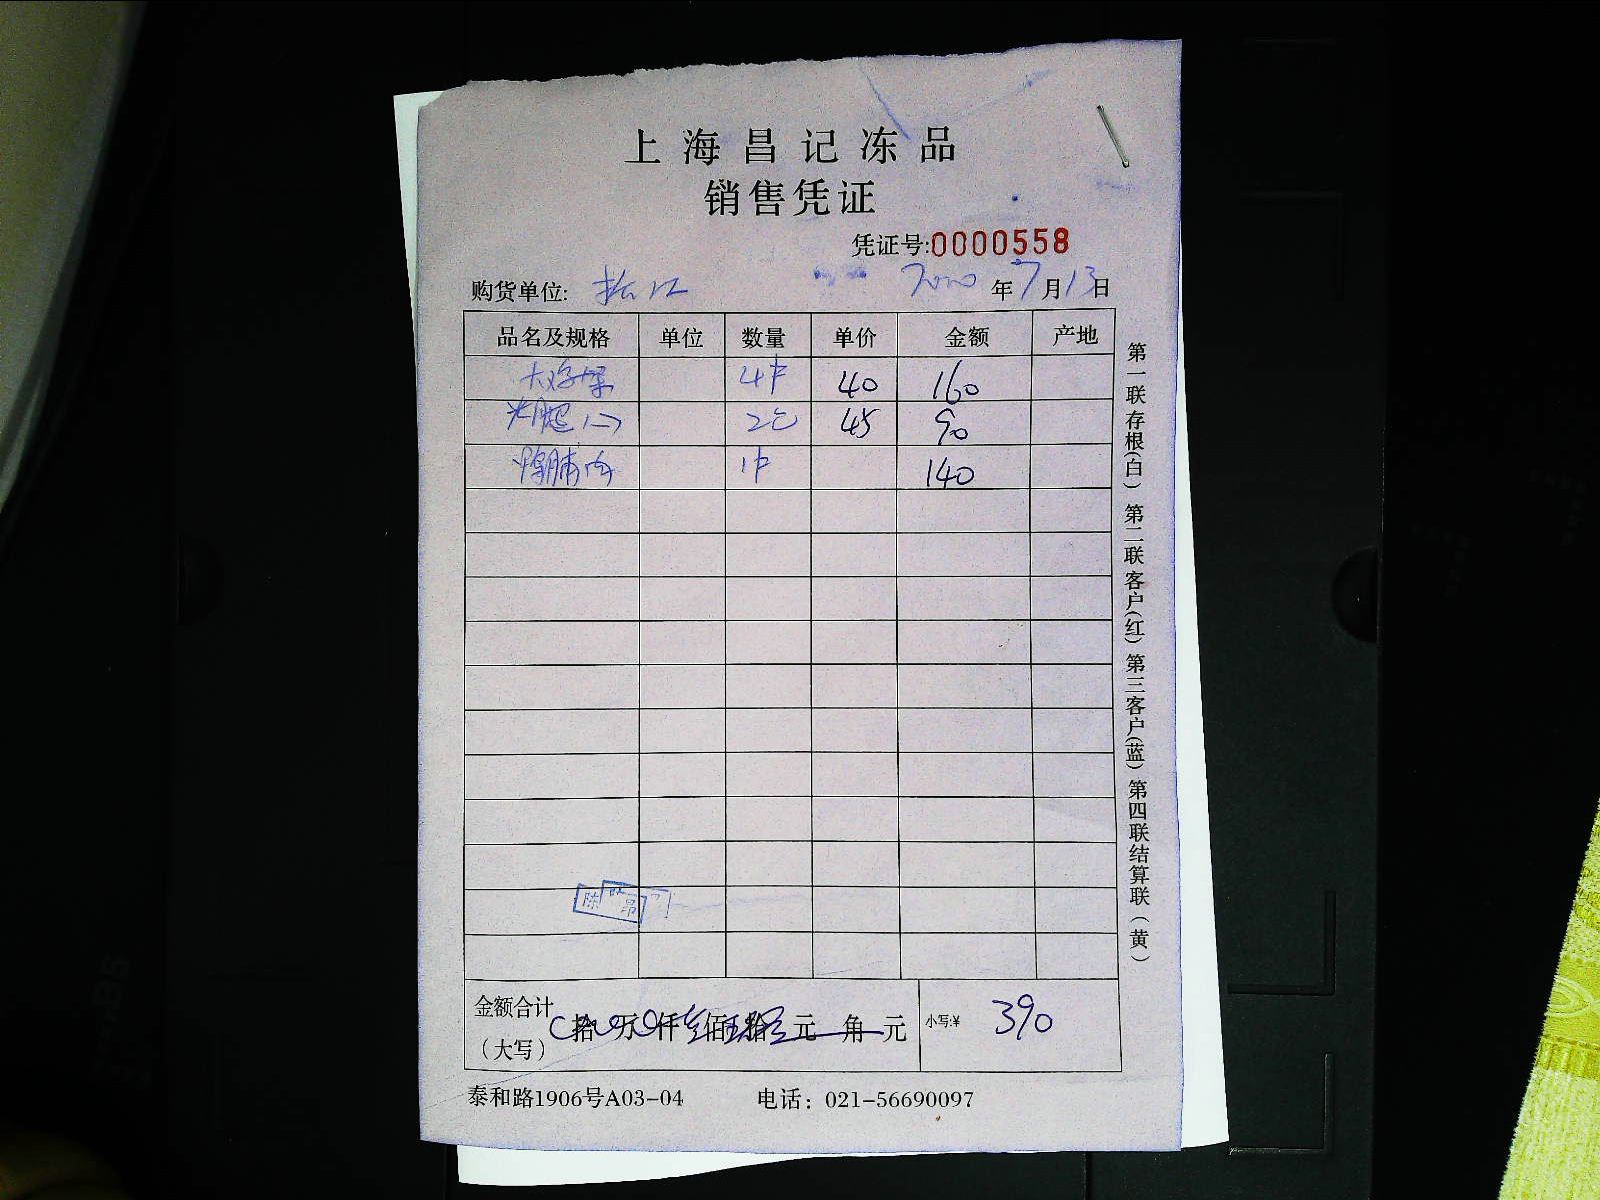 上海昌记冻品
销售凭证
凭证号:0000558
购货单位: 松江 2020年7月13日
品名及规格 单位 数量 单价 金额 产地
4 40 160
2包 45 90
1 140
金额合计
(大写) 拾 万 仟 佰 拾 元 角 元 小写:¥ 390
泰和路1906号A03-04 电话：021-56690097
第一联存根(白) 第二联客户(红) 第三客户(蓝) 第四联结算联(黄)